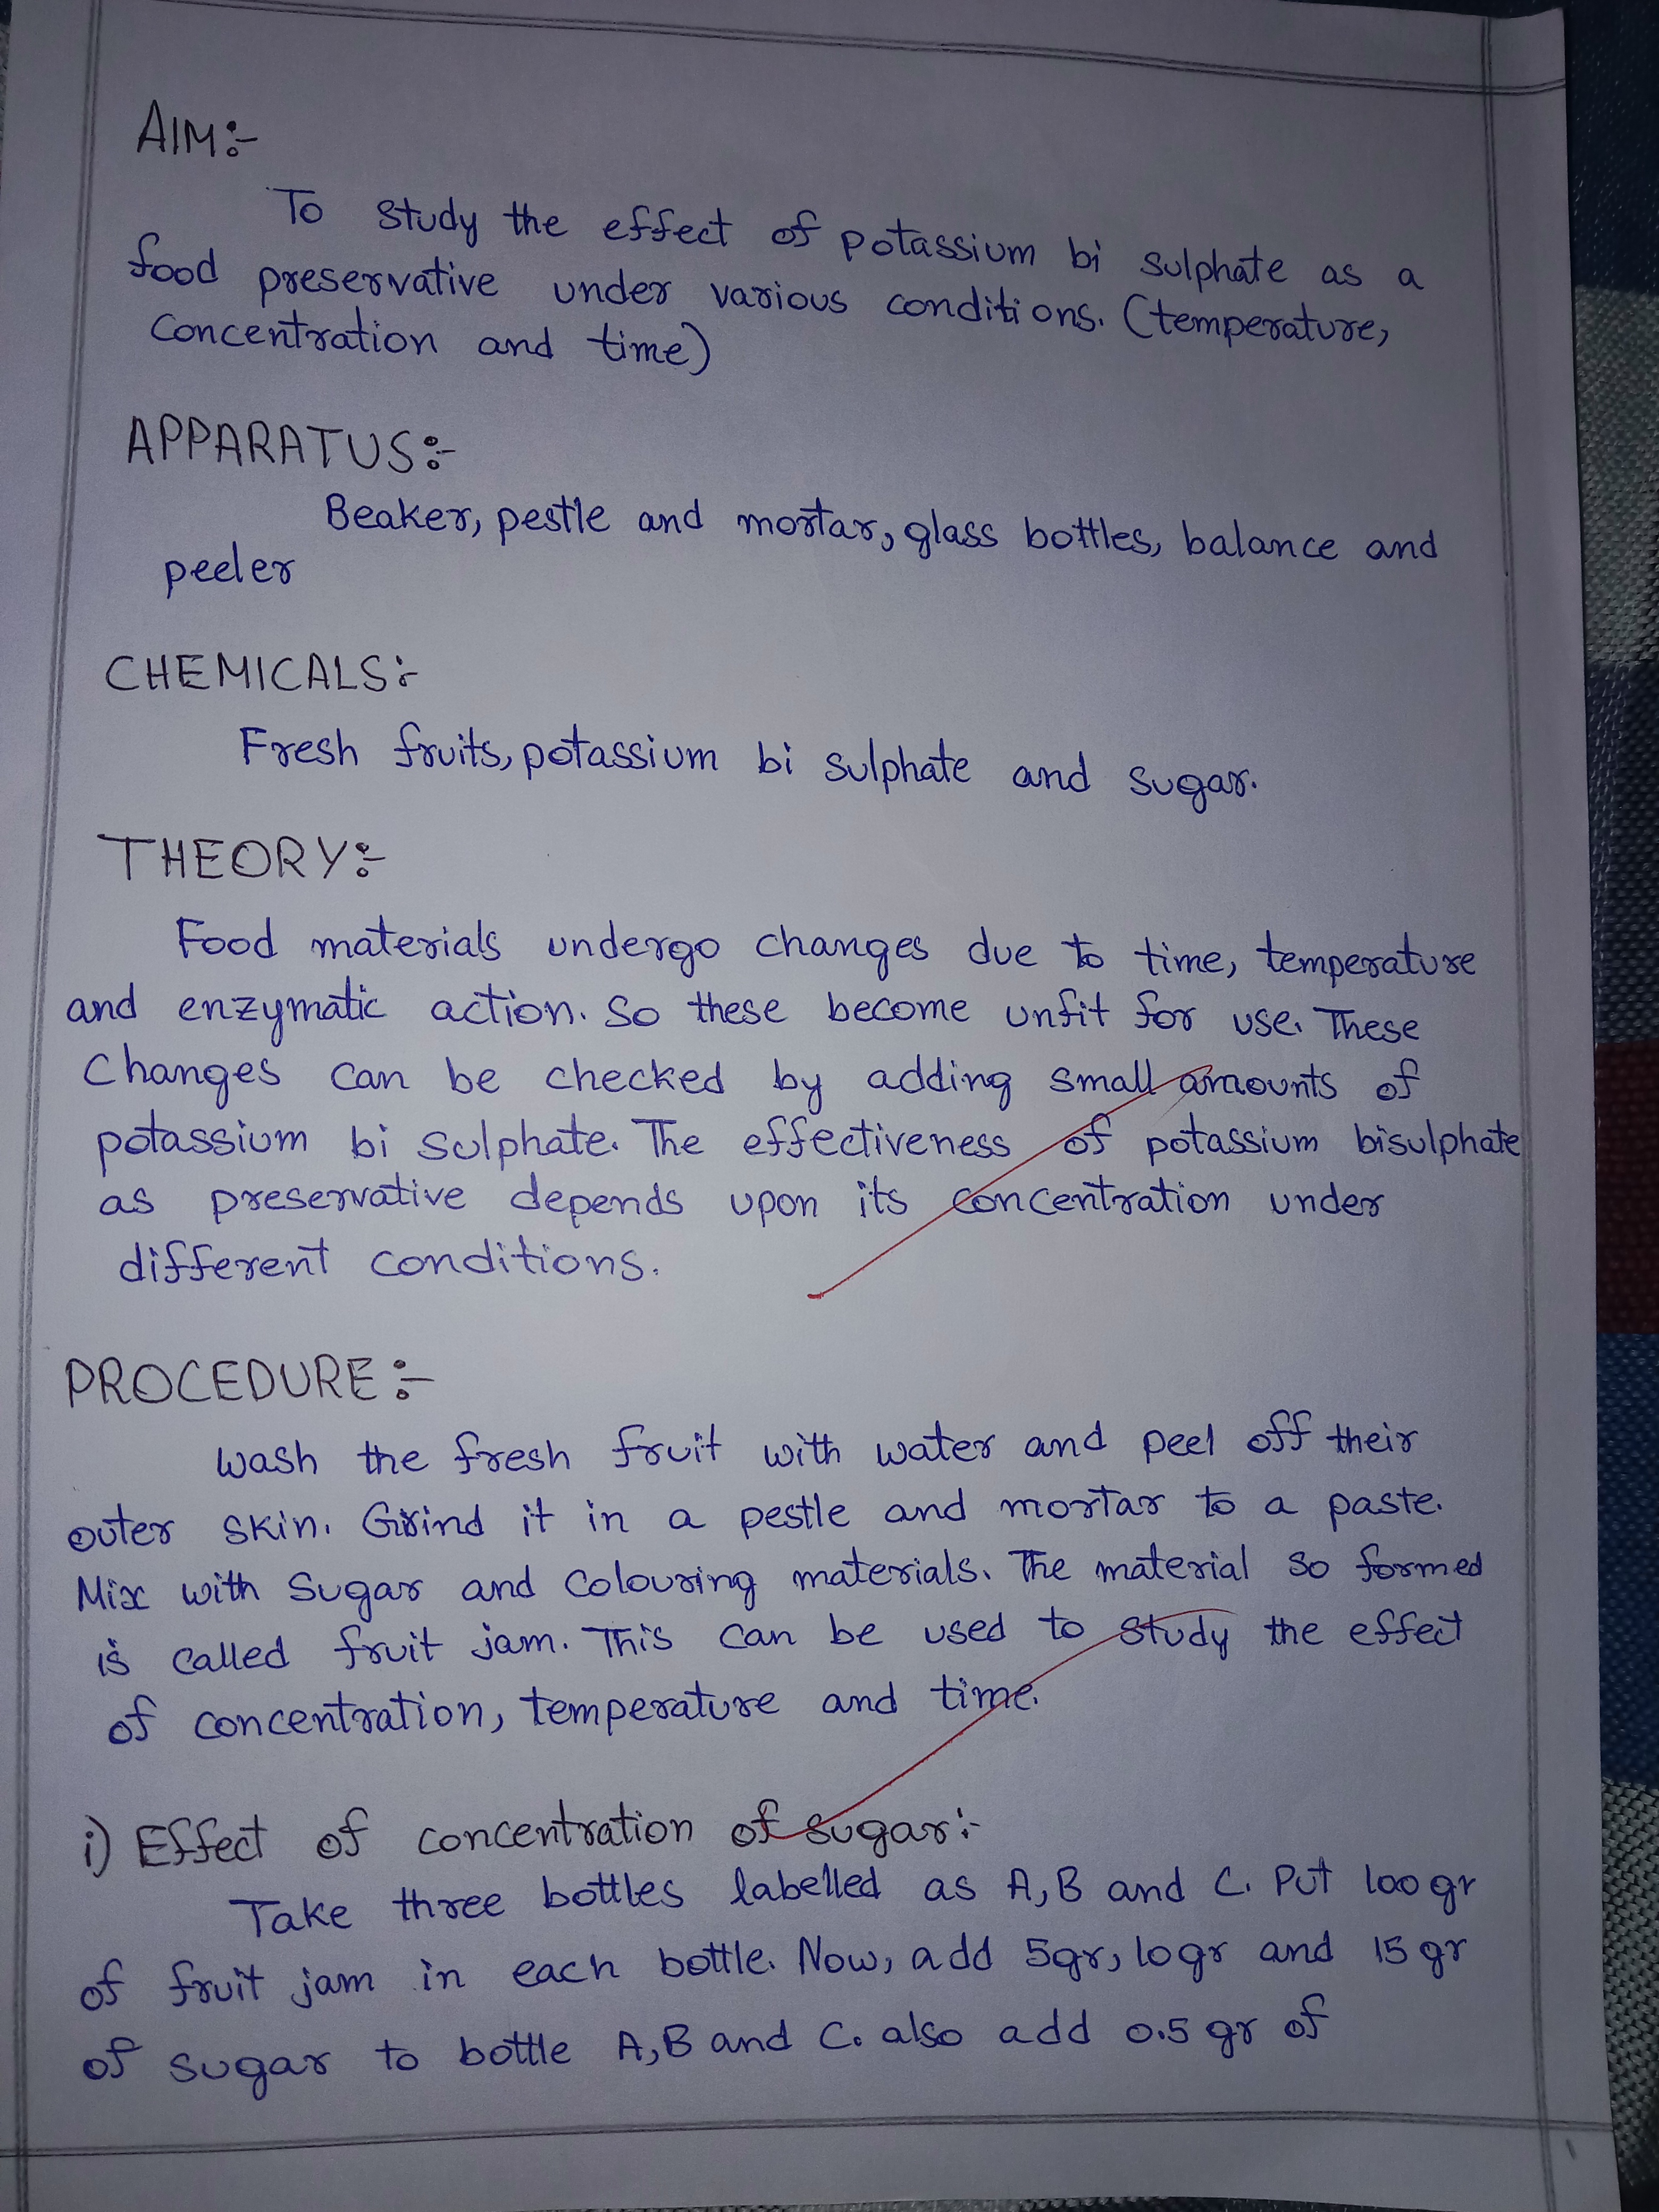 AIM:-
To study the effect of potassium bi sulphate as a
food preservative under various conditions. (temperature,
concentration and time)
APPARATUS:-
Beaker, pestle and mortar, glass bottles, balance and
peeler
CHEMICALS:-
Fresh fruits, potassium bi sulphate and sugar.
THEORY:-
Food materials undergo changes due to time, temperature
and enzymatic action. So these become unfit for use. These
Changes can be checked by adding small amounts of
potassium bi sulphate. The effectiveness of potassium bisulphate
as preservative depends upon its concentration under
different conditions.
PROCEDURE:-
Wash the fresh fruit with water and peel off their
outer skin. Grind it in a pestle and mortar to a paste.
Mix with sugar and colouring materials. The material so formed
is called fruit jam. This can be used to study the effect
of concentration, temperature and time.
i) Effect of concentration of sugar:-
Take three bottles labelled as A, B and C. Put 100 gr
of fruit jam in each bottle. Now, add 5gr, 10gr and 15 gr
of sugar to bottle A, B and C. also add 0.5 gr of